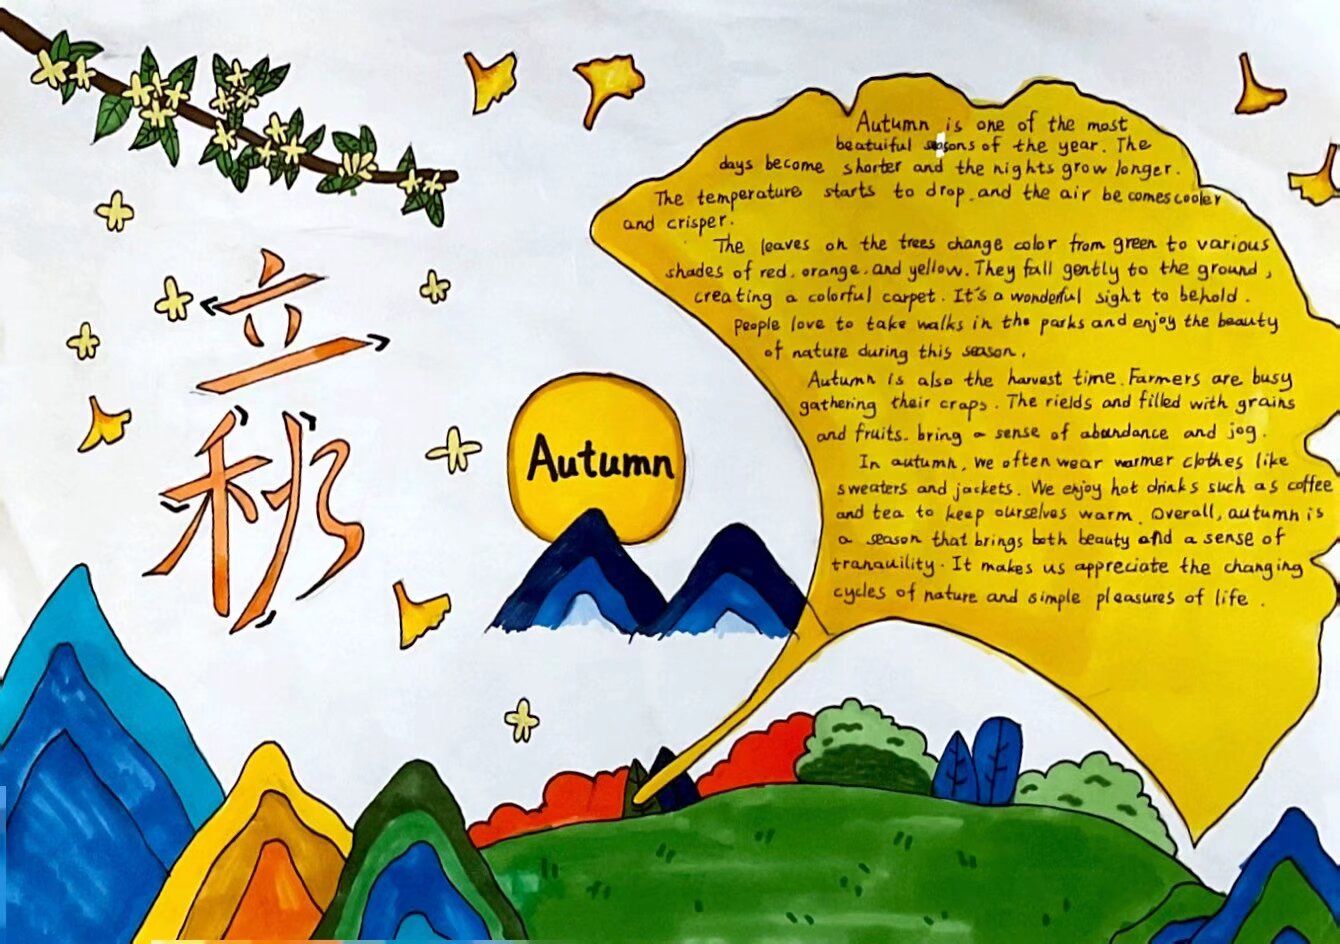 立
秋
Autumn
Autumn is one of the most
beatuiful seasons of the year. The
days become shorter and the nights grow longer.
The temperature starts to drop, and the air be comes cooler
and crisper.
The leaves on the trees change color from green to various
shades of red, orange, and yellow. They fall gently to the ground,
creating a colorful carpet. It's a wonderful sight to behold.
People love to take walks in the parks and enjoy the beauty
of nature during this season.
Autumn is also the harvest time. Farmers are busy
gathering their craps. The rields and filled with grains
and fruits. bring a sense of abundance and jog.
In autumn, we often wear warmer clothes like
sweaters and jackets. We enjoy hot drinks such as coffee
and tea to keep ourselves warm. Overall, autumn is
a season that brings both beauty and a sense of
tranquility. It makes us appreciate the changing
cycles of nature and simple pleasures of life.